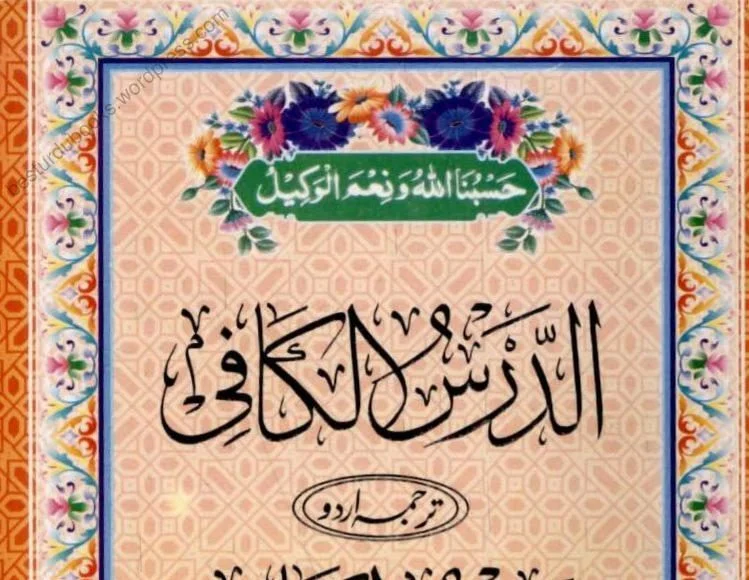 besturdubooks.wordpress.com
حَسْبُنَا اللّٰهُ وَنِعْمَ الْوَكِيْلُ
الدَّرْسُ الْكَافِي
ترجمہ اردو